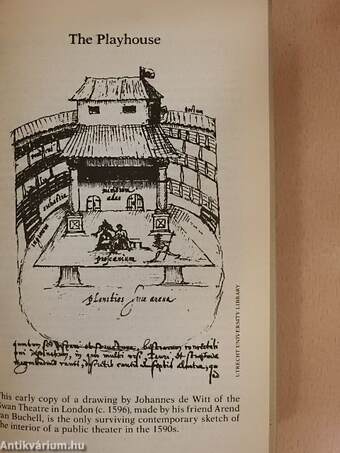 The Playhouse
tectum
mimorum
ædes
orchestra
ingressus
proscænium
planities sive arena
UTRECHT UNIVERSITY LIBRARY
This early copy of a drawing by Johannes de Witt of the
Swan Theatre in London (c. 1596), made by his friend Arend
van Buchell, is the only surviving contemporary sketch of
the interior of a public theater in the 1590s.
Antikvárium.hu